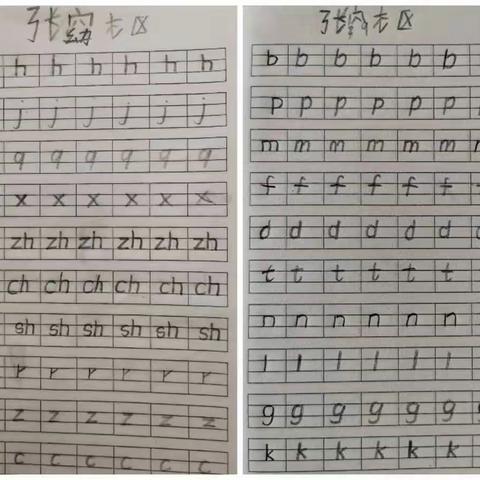 张 区
h h h h h h
j j j j j j
q q q q q q
x x x x x x
zh zh zh zh zh zh
ch ch ch ch ch ch
sh sh sh sh sh sh
r r r r r r
z z z z z z
c c c c c c
张 区
b b b b b b
p p p p p p
m m m m m m
f f f f f f
d d d d d d
t t t t t t
n n n n n n
l l l l l l
g g g g g g
k k k k k k